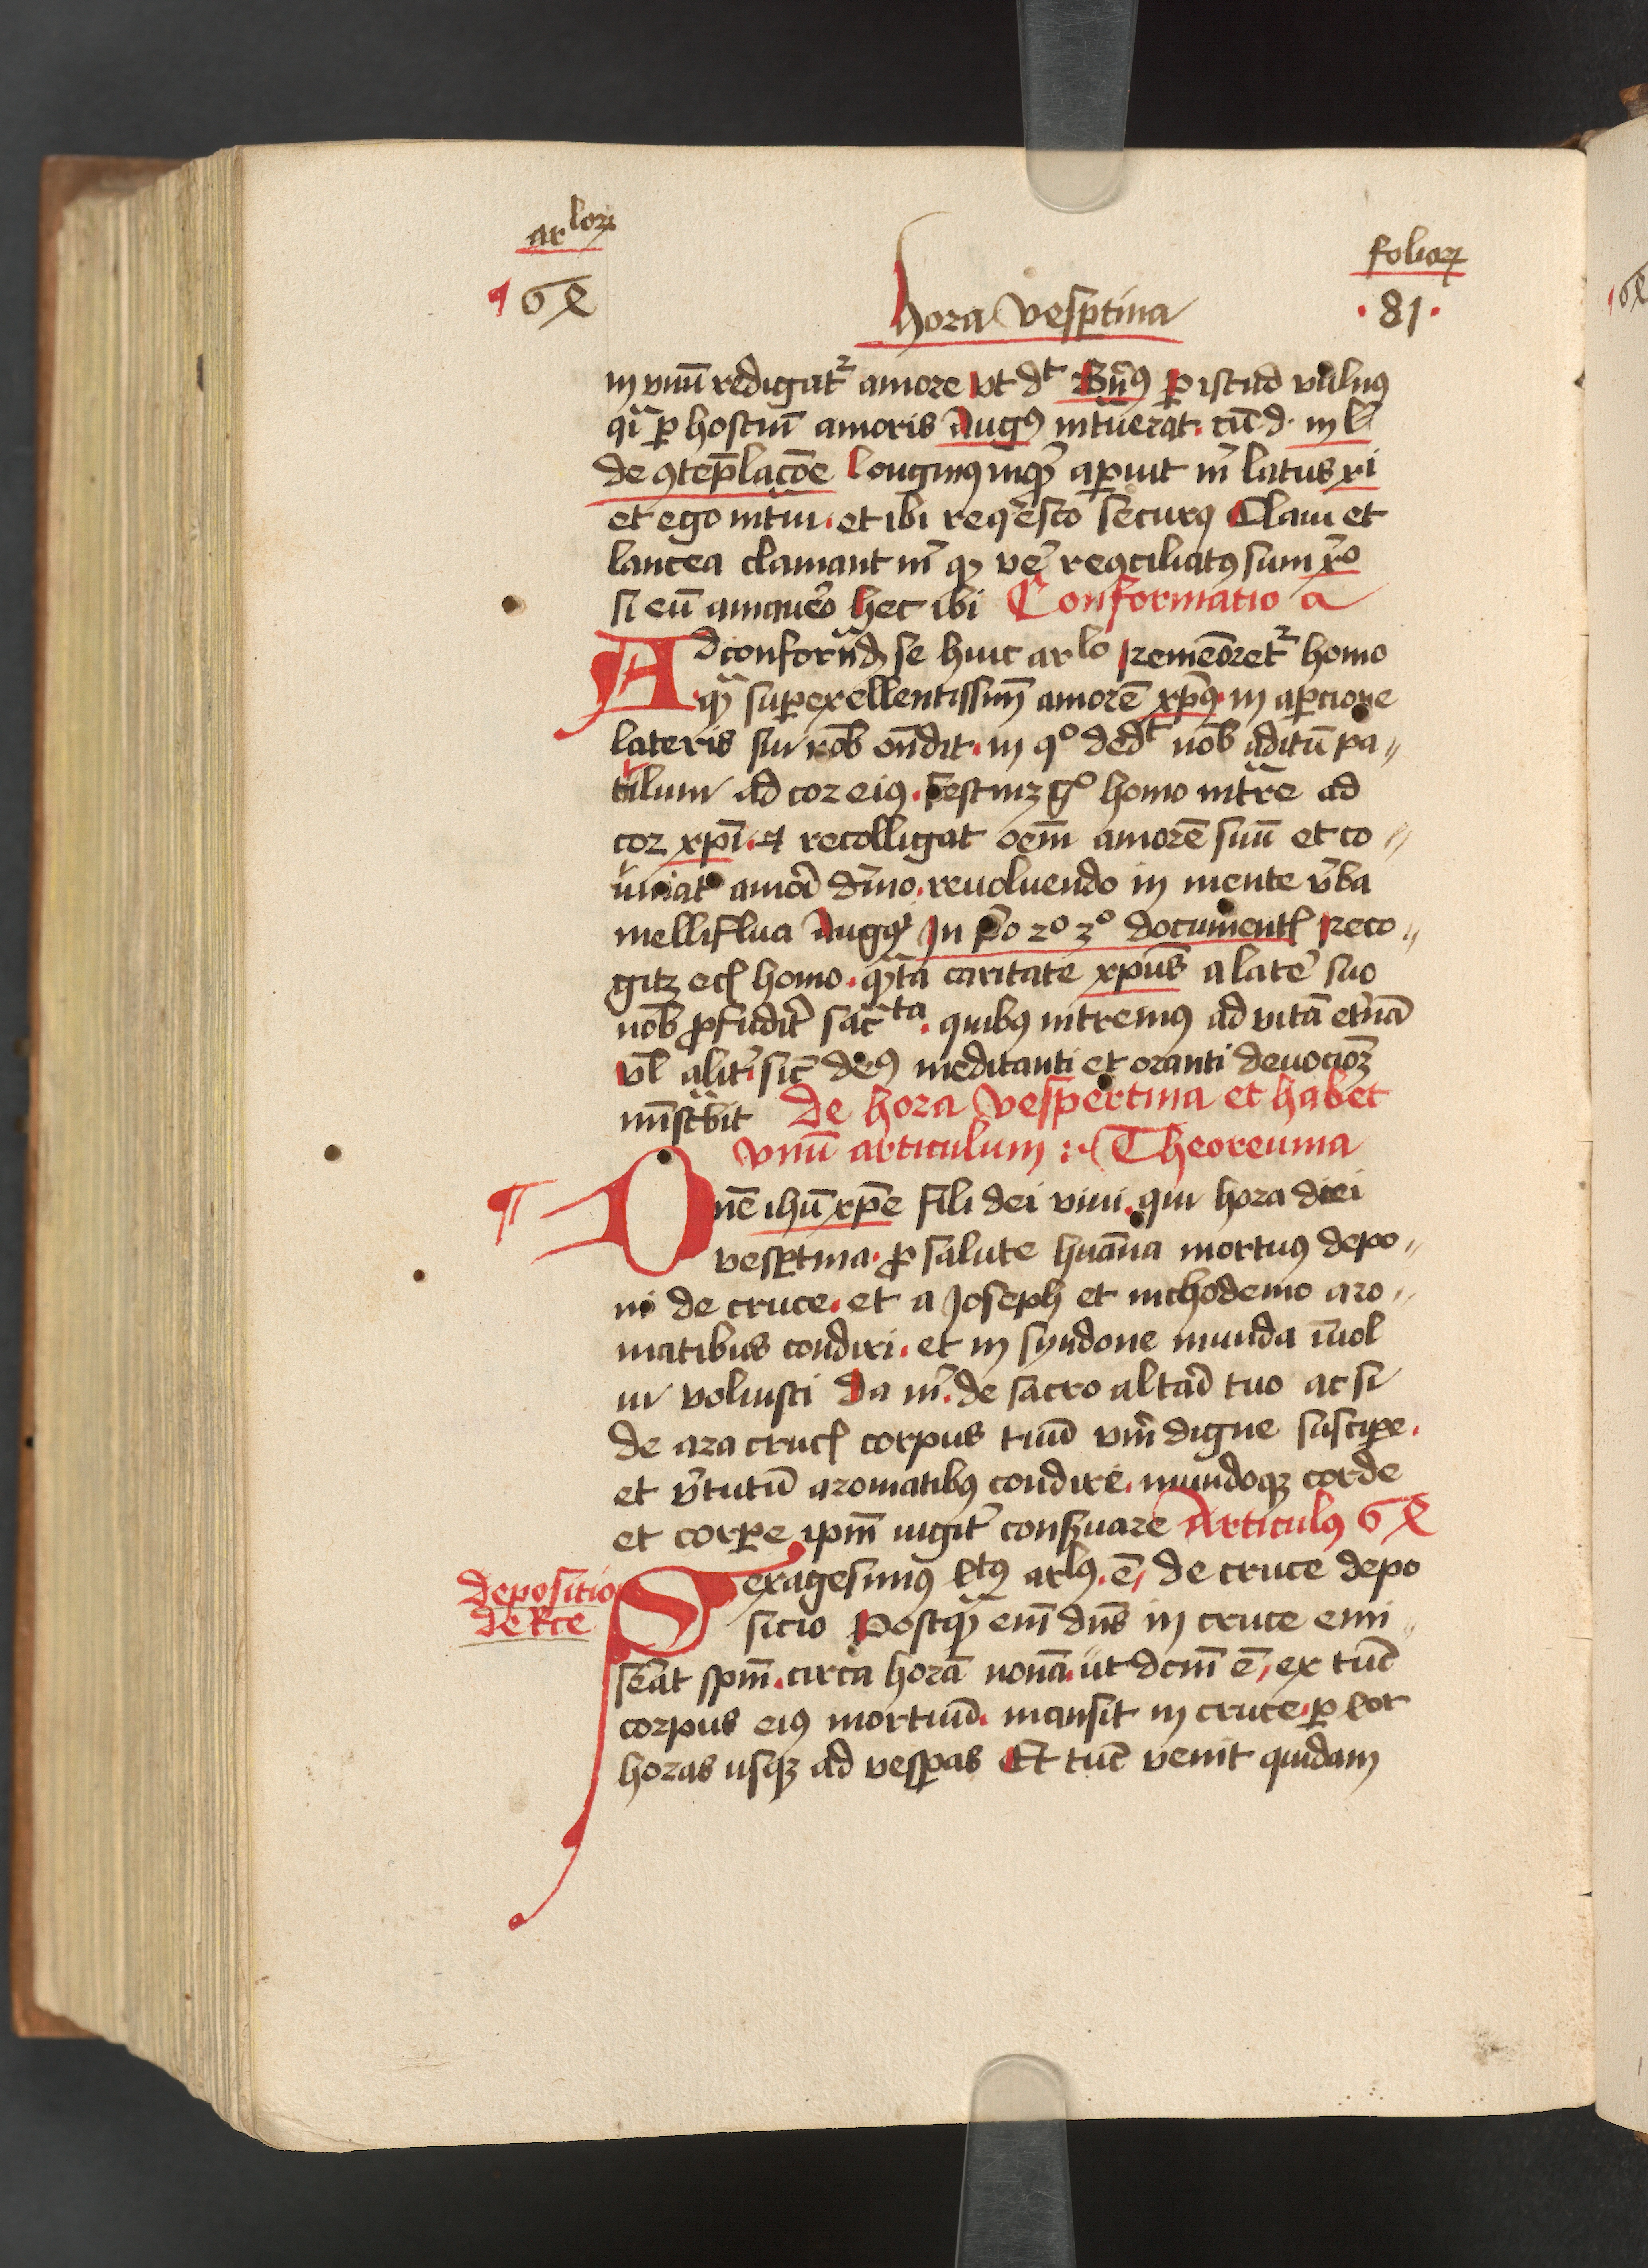 arlorum
folioꝝ
¶ 6ꝝ
hora vesptina
· 81 ·
in vnū redigatʳ amore vt dᵗ Bñꝰ ꝑ istud vulnꝰ
qͥ ꝑ hostiū amoris Augꝰ intͣuerat. cū d. in l
de ꝯtēplacōe longinꝰ inqͥ aꝑuit m̄ latus xi
et ego intͣui. et ibi reqͥesco securꝰ Claui et
lancea clamant m̄ qꝫ ve᷑ reꝯciliatꝰ sum xo
si eū amaue᷑o hec ibi Conformatio a
Ad conformͣdū se huic arlo rememōretʳ homo
qͣꝫ superexellentissimū amorē xp̄ꝰ in aꝑcione
lateris sui nob̄ on̄dit. in qº dedᵗ nob̄ aditū pa〃
tulum ad cor eiꝰ. festinꝫ gº homo intͣre ad
cor xp̄i. et recolligat oēm amorē suū et co〃
uniat amori᷑ diͥno. reuoluendo in mente v̄ba
melliflua Augꝰ In p̊o 2º 3º documentꝭ Reco〃
gitꝫ ecꝭ homo. qͣta caritate xpūs a late᷑ suo
nob̄ ꝓfudit᷑ sac̄ᵗᵃ. quibꝰ intremꝰ ad vitā et᷑nā
vl᷑ alit᷑ sic̄ deꝰ meditanti et oranti deuocioꝫ
mīstͣbit De hora vespertina et habet
vnū articulum :· Theoreuma
Dn̄e ihū xp̄e fili dei viui. qui hora diei
vesꝑtina. ꝓ salute huāna mortuꝰ depo〃
ni de cruce. et a Joseph et nichodemo aro〃
matibus condiri. et in syndone munda īuol
ui voluisti Da m̄. de sacro altari᷑ tuo ac si
de ara crucꝭ corpus tuū viū᷑ digne susciꝑe.
et v᷑tutū aromatibꝰ condire. mundoqꝫ corde
et corꝑe ip̄m iugit᷑ conẜuare Articulꝰ 6ꝝ
depositio
de kce
Sexagesimꝰ ꝝtꝰ arlꝰ. ē, de cruce depo
sicio Postqͣꝫ em̄ dn̄s in cruce emi〃
serāt sp̄m. circa horā nonā. ut dc̄m ē, ex tūc
corpus eiꝰ mortuū. mansit in cruce. ꝑ tot
horas usqꝫ ad vesꝑas Et tūc venit quidam